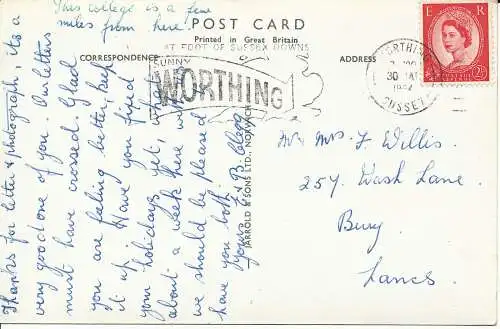 This college is a few
miles from here.
POST CARD
Printed in Great Britain
AT FOOT OF SUSSEX DOWNS
CORRESPONDENCE
ADDRESS
SUNNY
WORTHING
WORTHING
30
SUSSEX
E R
2½D
Thanks for letter & photograph, its a
very good one of you. Our letters
must have crossed. Glad
you are feeling better, keep
it up. Have you fixed
your holidays yet, if
about a week here with
we should be pleased
have you both.
Yours
JARROLD & SONS LTD., NORWICH
Mr & Mrs F Willis.
257. Wash Lane.
Bury.
Lancs.